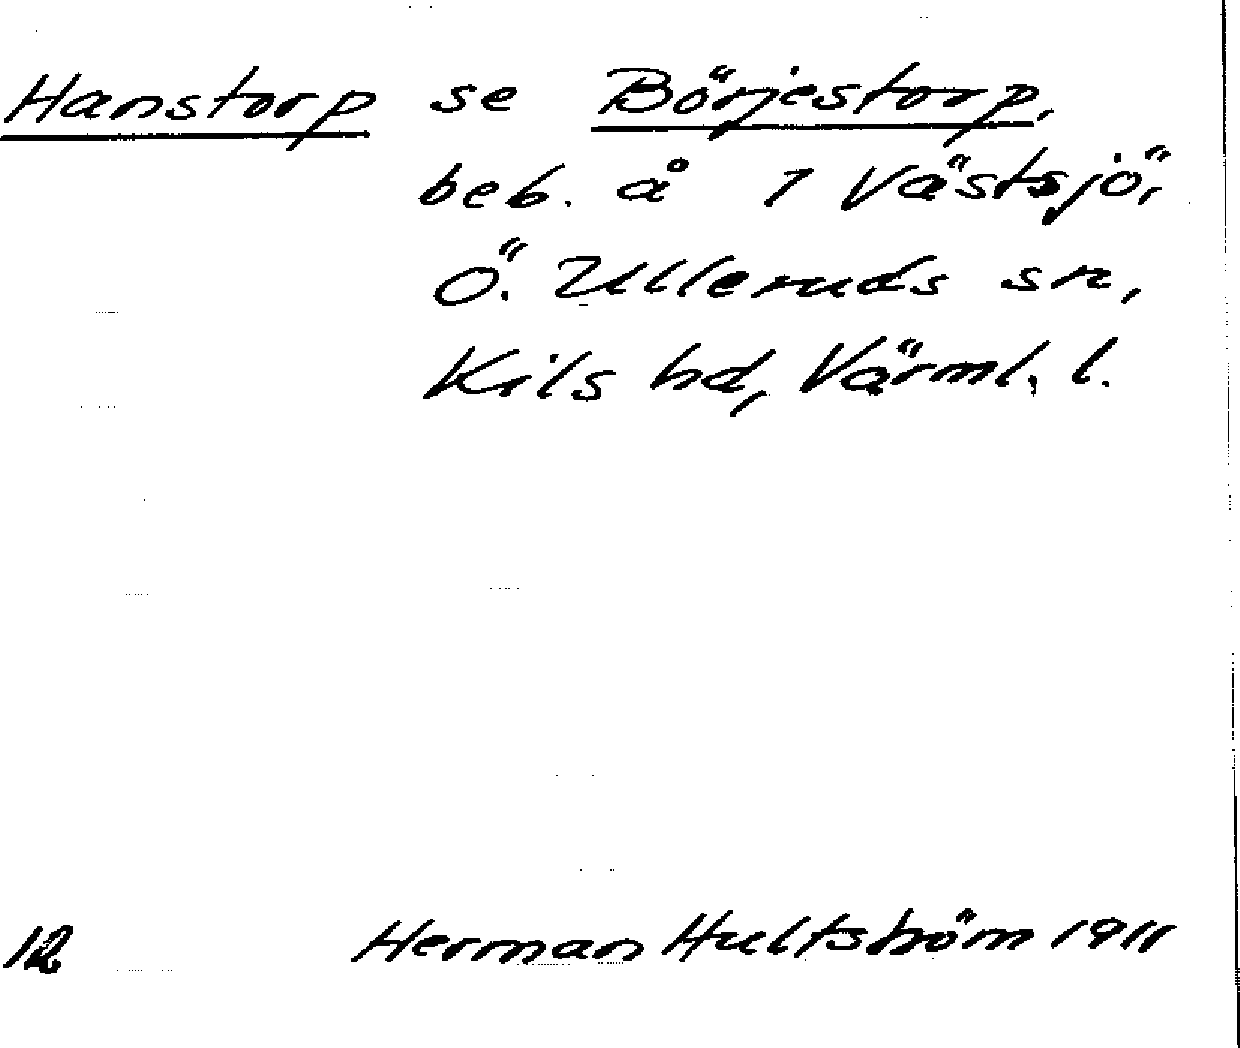 Hanstorp se Börjestorp,
beb. å 1 Västsjö,
Ö. Ulleruds sn,
Kils hd, Värml. l.
12 Herman Hultström 1911